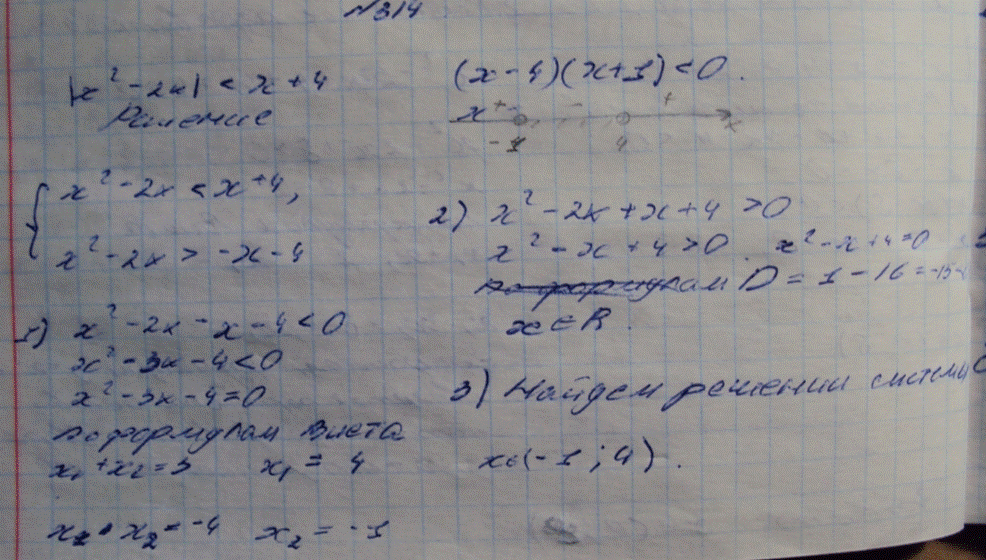 №314
|x² - 2x| < x + 4
Решение
x² - 2x < x + 4,
x² - 2x > -x - 4
1) x² - 2x - x - 4 < 0
x² - 3x - 4 < 0
x² - 3x - 4 = 0
по формулам Виета
x₁ + x₂ = 3 x₁ = 4
x₁ • x₂ = -4 x₂ = -1
(x - 4)(x + 1) < 0.
+ - +
-1 4 x
2) x² - 2x + x + 4 > 0
x² - x + 4 > 0. x² - x + 4 = 0
по формулам D = 1 - 16 = -15
x ∈ R.
3) Найдем решении системы
x ∈ (-1; 4).